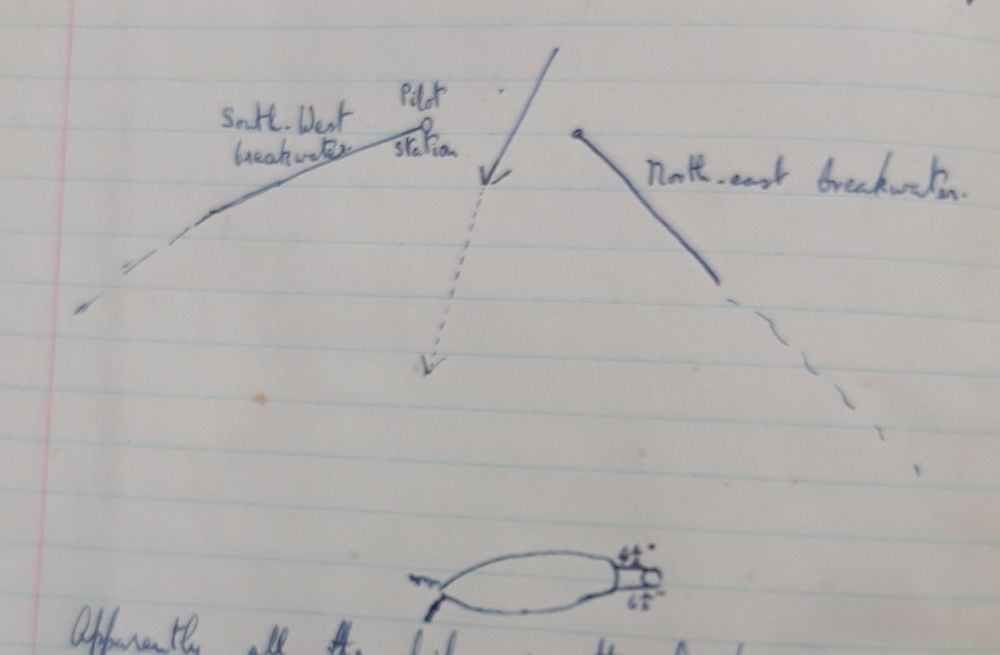 Pilot
South-West
breakwater.
station
North-east breakwater.
6½"
6½"
Apparently all the